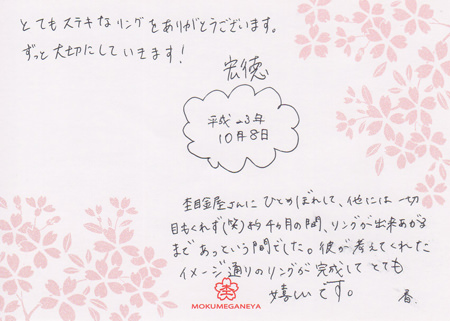 とてもステキなリングをありがとうございます。
ずっと大切にしていきます!
宏徳
平成23年
10月8日
杢目金屋さんにひとめぼれして、他には一切
目もくれず(笑)約4ヶ月の間、リングが出来あがる
まであっという間でした。彼が考えてくれた
イメージ通りのリングが完成してとても
嬉しいです。
春
MOKUMEGANEYA